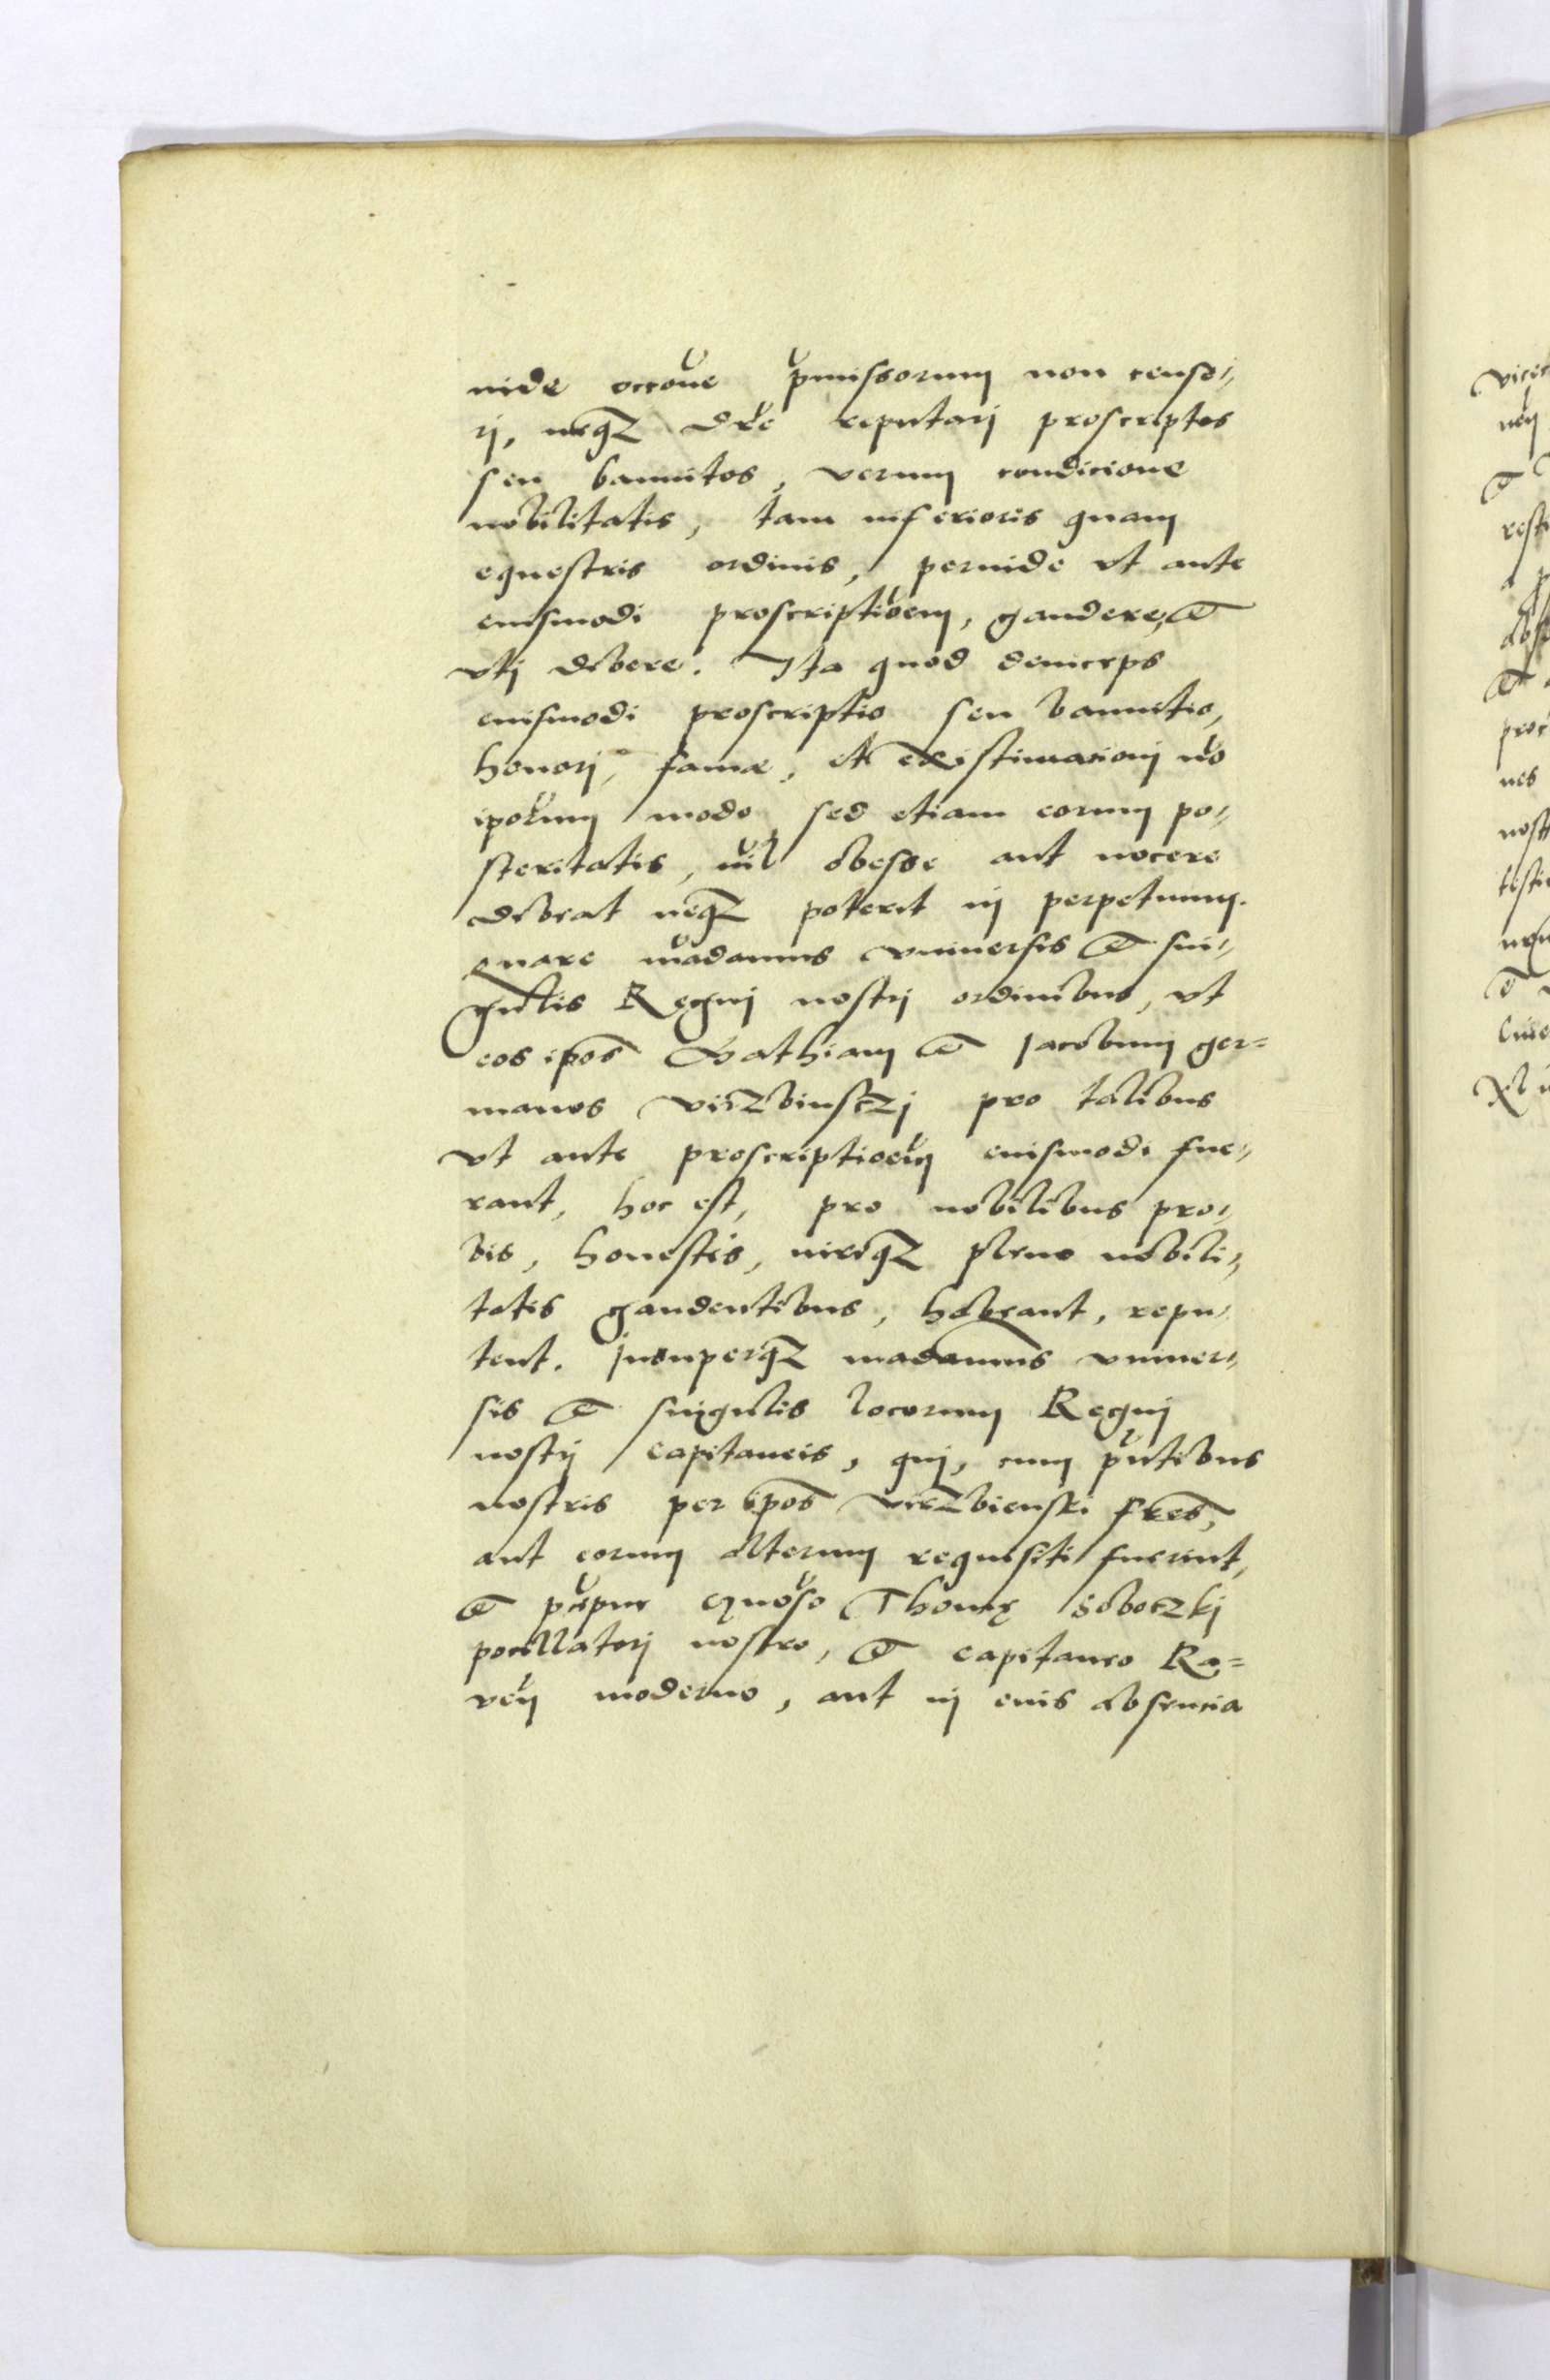 inde occōne p̄missorum non cense-
ri, neqz dr̄e reputarj proscriptos
seu bannitos, verum condicione
nobilitatis, tam inferioris quam
equestris ordinis, perinde vt ante
eiusmodi proscriptōem, gaudere, et
vtj debere. Ita quod deinceps
eiusmodi proscriptio seu bannitio,
honorj, famae, et existimacionj nō
ipōrum modo sed etiam eorum po-
steritatis, nil obesse aut nocere
debeat neqz poterit in perpetuum.
Quare mādamus vniuersis et sin-
gulis Regnj nostrj ordinibus, vt
eos ipōs Mathiam et Jacobum ger=
manos virzbinsczj pro talibus
vt ante proscriptiōem eiusmodi fue-
rant, hoc est, pro nobilibus pro-
bis, honestis, iureqz pleno nobili-
tatis gaudentibus, habeant, repu-
tent. Insuperqz madamus vniuer-
sis et singulis locorum Regnj
nostrj capitaneis, quj, cum pn̄tibus
nostris per ipōs virzbienski frēs,
aut eorum alterum requisiti fuerint,
et p̄cipue gnōso Thomę Soboczkj
pocillatorj nostro, et capitaneo Ra=
ven̄ moderno, aut in eius absencia